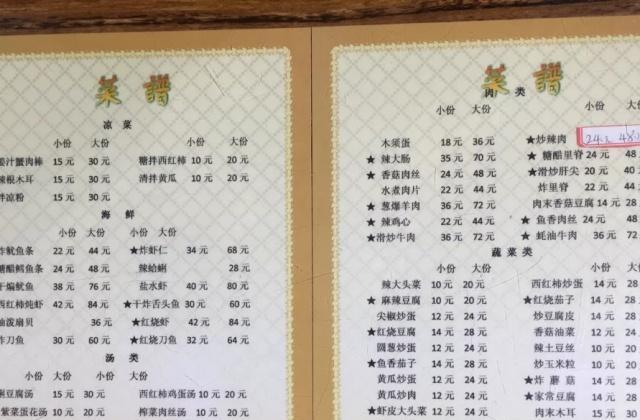 菜谱
凉 菜
小份 大份 小份 大份
姜汁蟹肉棒 15 元 30 元 糖拌西红柿 10 元 20 元
辣根木耳 15 元 30 元 清拌黄瓜 10 元 20 元
拌凉粉 15 元 30 元
海 鲜
小份 大份 小份 大份
炸鱿鱼条 22 元 44 元 ★炸虾仁 34 元 68 元
糖醋鱿鱼条 24 元 48 元 辣蛤蜊 28 元
干煸鱿鱼 38 元 76 元 盐水虾 40 元 80 元
西红柿炖虾 42 元 84 元 ★干炸舌头鱼 30 元 60 元
油泼扇贝 36 元 ★红烧虾 42 元 84 元
炸刀鱼 30 元 60 元 ★红烧刀鱼 32 元 64 元
汤 类
小份 大份 小份 大份
蜊豆腐汤 15 元 30 元 西红柿鸡蛋汤 10 元 20 元
紫菜蛋花汤 10 元 20 元 榨菜肉丝汤 10 元 20 元
菜谱
肉 类
小份 大份 小份 大份
木须蛋 18 元 36 元 ★炒辣肉 24元 48
★ 辣大肠 35 元 70 元 ★ 糖醋里脊 24 元 48
★ 香菇肉丝 24 元 48 元 ★滑炒肝尖 20 元 40
水煮肉片 22 元 44 元 炸里脊 22 元 44
★ 葱爆羊肉 36 元 72 元 肉末香菇豆腐 14 元 28
★ 辣鸡心 22 元 44 元 ★ 鱼香肉丝 24 元 48
★滑炒牛肉 36 元 72 元 ★ 蚝油牛肉 36 元 72
蔬 菜 类
小份 大份 小份 大份
辣大头菜 10 元 20 元 西红柿炒蛋 14 元 28
★ 麻辣豆腐 10 元 20 元 ★红烧茄子 14 元 28
尖椒炒蛋 12 元 24 元 炒豆腐皮 14 元 28
★红烧豆腐 12 元 24 元 香菇油菜 14 元 28
圆葱炒蛋 12 元 24 元 辣土豆丝 10 元 20
★鱼香茄子 14 元 28 元 炒玉米粒 10 元 20
黄瓜炒蛋 12 元 24 元 ★炸 蘑 菇 14 元 28
黄瓜炒肉 12 元 24 元 ★家常豆腐 14 元 28
★虾皮大头菜 12 元 24 元 肉末木耳 15 元